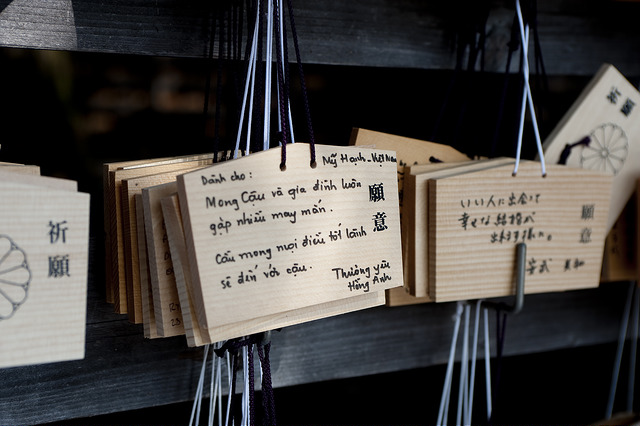 祈願
Dành cho: Mỹ Hạnh - Việt Nam
Mong Cậu và gia đình luôn
gặp nhiều may mắn.
Cầu mong mọi điều tốt lành
sẽ đến với cậu.
Thương yêu
Hồng Anh
願意
いい人に出会って
幸せな結婚が
出来ますように。
願意
祈願